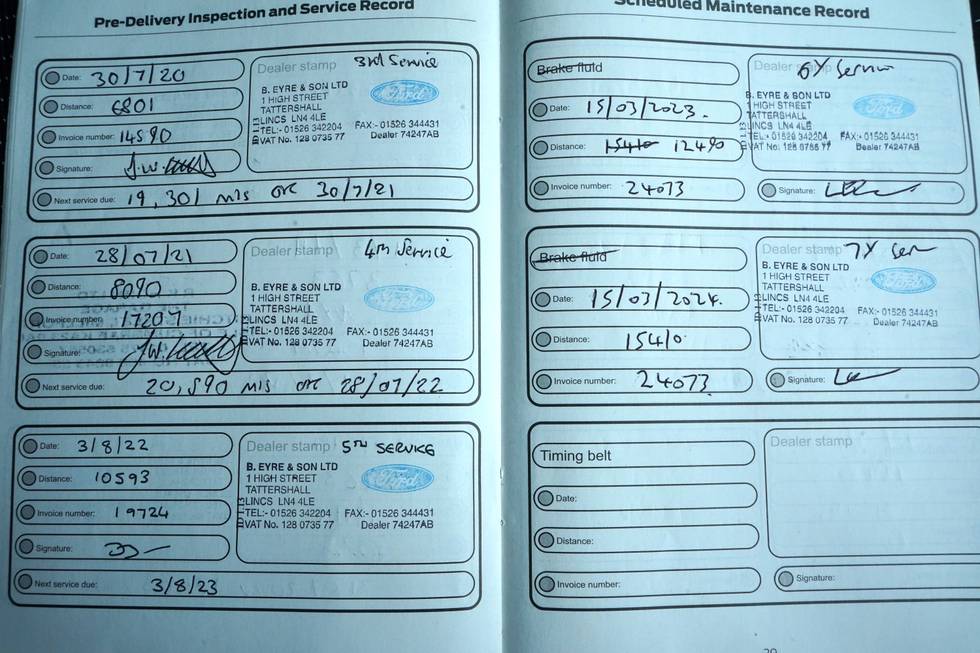 Pre-Delivery Inspection and Service Record
Date: 30/7/20
Distance: 6801
Invoice number: 14590
Signature:
Next service due: 19,301 mls or 30/7/21
Dealer stamp 3rd Service
B. EYRE & SON LTD
1 HIGH STREET
TATTERSHALL
LINCS LN4 4LE
TEL:- 01526 342204 FAX:- 01526 344431
VAT No. 128 0735 77 Dealer 74247AB
Ford
Date: 28/07/21
Distance: 8090
Invoice number: 17207
Signature:
Next service due: 20,590 mls or 28/07/22
Dealer stamp 4th Service
B. EYRE & SON LTD
1 HIGH STREET
TATTERSHALL
LINCS LN4 4LE
TEL:- 01526 342204 FAX:- 01526 344431
VAT No. 128 0735 77 Dealer 74247AB
Ford
Date: 3/8/22
Distance: 10593
Invoice number: 19724
Signature:
Next service due: 3/8/23
Dealer stamp 5TH SERVICE
B. EYRE & SON LTD
1 HIGH STREET
TATTERSHALL
LINCS LN4 4LE
TEL:- 01526 342204 FAX:- 01526 344431
VAT No. 128 0735 77 Dealer 74247AB
Ford
Scheduled Maintenance Record
Brake fluid
Date: 15/03/2023.
Distance: 15410 12490
Invoice number: 24073
Signature:
Dealer stamp 6Y Service
B. EYRE & SON LTD
1 HIGH STREET
TATTERSHALL
LINCS LN4 4LE
TEL:- 01526 342204 FAX:- 01526 344431
VAT No. 128 0735 77 Dealer 74247AB
Ford
Brake fluid
Date: 15/03/2024.
Distance: 15410
Invoice number: 24073
Signature:
Dealer stamp 7Y Ser
B. EYRE & SON LTD
1 HIGH STREET
TATTERSHALL
LINCS LN4 4LE
TEL:- 01526 342204 FAX:- 01526 344431
VAT No. 128 0735 77 Dealer 74247AB
Ford
Timing belt
Date:
Distance:
Invoice number:
Signature:
Dealer stamp